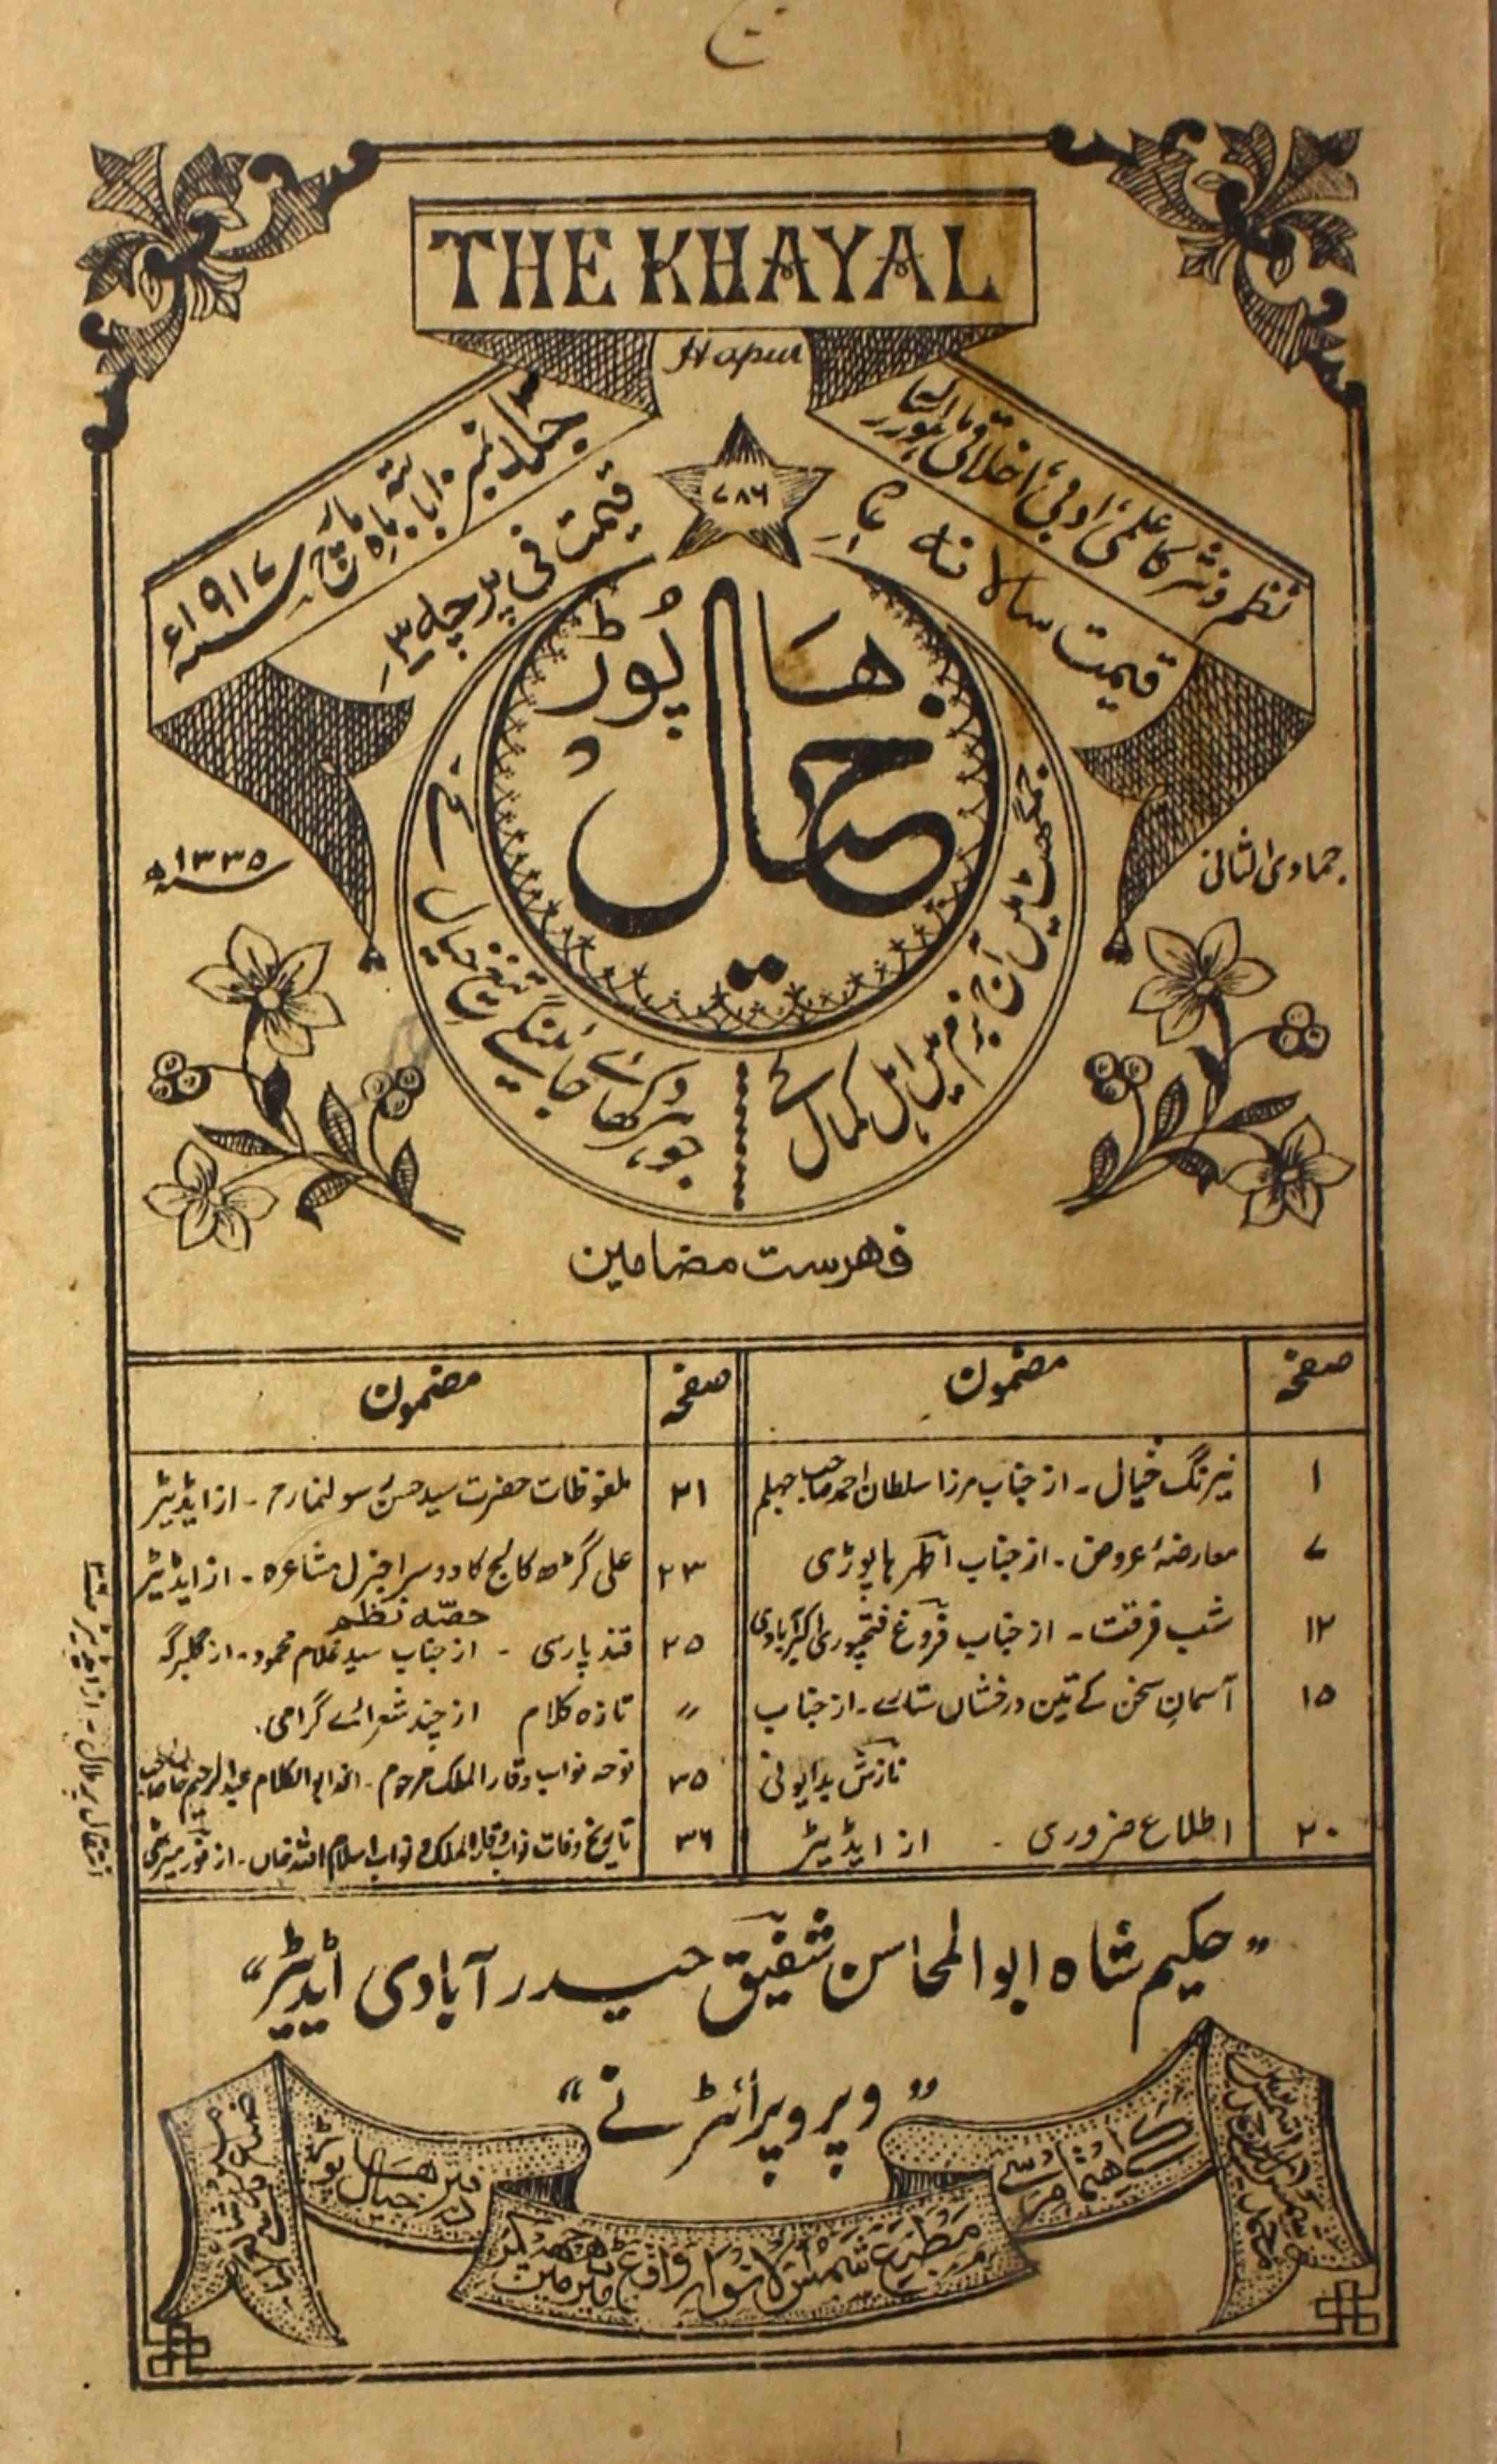 THE KHAYAL
Hapur
نظم و نثر کا علمی، ادبی، اخلاقی ماہوار رسالہ
بابتہ ماہ مارچ سنہ ۱۹۱۷ء
۷۸۶
قیمت سالانہ
قیمت فی پرچہ ۳؍
ہاپوڑ
خیال
جمادی الثانی
سنہ ۱۳۳۵ھ
جمگھٹ ہیں آج بزم میں اہل کمال کے
جوہر دکھائے جائینگے تیغِ خیال کے
فہرست مضامین
صفحہ مضمون
۱ نیرنگ خیال۔ از جناب مرزا سلطان احمد صاحب جہلم
۷ معارضۂ عروض۔ از جناب اظہر ہاپوڑی
۱۲ شب فرقت۔ از جناب فروغ فتحپوری اکبرآبادی
۱۵ آسمانِ سخن کے تین درخشاں ستارے۔ از جناب
نازش بدایونی
۲۰ اطلاع ضروری۔ از ایڈیٹر
صفحہ مضمون
۲۱ ملفوظات حضرت سید حسن رسولنما رح۔ از ایڈیٹر
۲۳ علی گڑھ کالج کا دوسرا جنرل مشاعرہ۔ از ایڈیٹر
حصّہ نظم
۲۵ قند پارسی۔ از جناب سید غلام محمود۔ از گلبرگہ
〃 تازہ کلام از چند شعرائے گرامی۔
۳۵ نوحہ نواب وقار الملک مرحوم۔ از ابوالکلام عبدالرحیم خاں صاحب
۳۶ تاریخ وفات نواب وقار الملک و نواب اسلام اللہ خاں۔ از نور میرٹھی
”حکیم شاہ ابوالمحاسن شفیق حیدرآبادی ایڈیٹر“
”و پروپرائٹر نے“
کے اہتمام سے
مطبع شمس الانوار واقع میرٹھ میں چھپکر
دفتر خیال ہاپوڑ